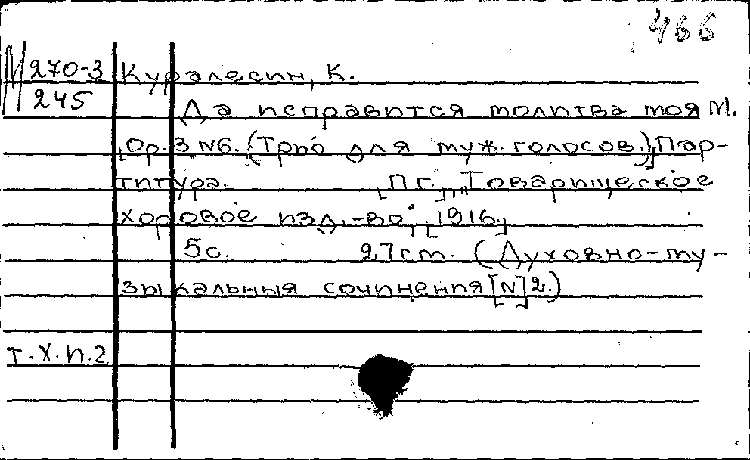 466
М 270-3 Куралесин, К.
245 Да исправится молитва моя М.
Ор. 3 №6. (Трио для муж. голосов.) Пар-
титура. [Пг.], "Товарищеское
хоровое изд.-во", [1916.]
5с. 27см. (Духовно-му-
зыкальныя сочинения [№] 2.)
т.х.п.2